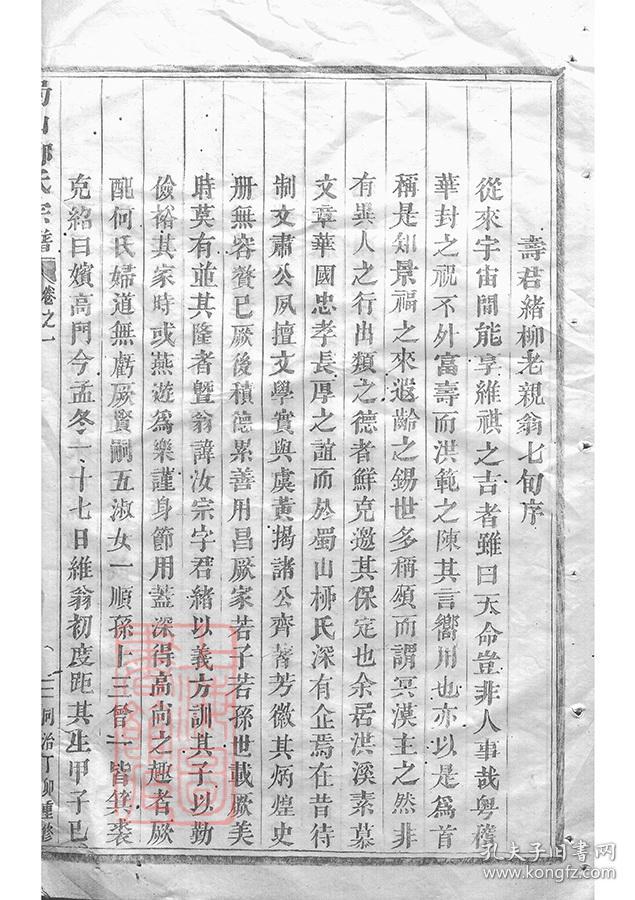 壽君緒柳老親翁七旬序
從來宇宙間能享維祺之吉者雖曰天命豈非人事哉粵稽
華封之祝不外富壽而洪範之陳其言嚮用也亦以是為首
稱是知景福之來遐齡之錫世多稱頌而謂冥漠主之然非
有異人之行出類之德者鮮克邀其保定也余居洪溪素慕
文章華國忠孝長厚之誼而於蜀山柳氏深有企焉在昔待
制文肅公夙擅文學實與虞黃揭諸公齊著芳徽其炳煌史
册無容贅已厥後積德累善用昌厥家若子若孫世載厥美
時莫有並其隆者曁翁諱汝宗字君緒以義方訓其子以勤
儉裕其家時或燕遊爲樂謹身節用蓋深得高尚之趣者厥
配何氏婦道無虧厥賢嗣五淑女一順孫十三曾一皆箕裘
克紹曰嬪高門今孟冬二十七日維翁初度距其生甲子已
蜀山柳氏宗譜
卷之一
同治丁卯重修
孔夫子旧書网
www.kongfz.com